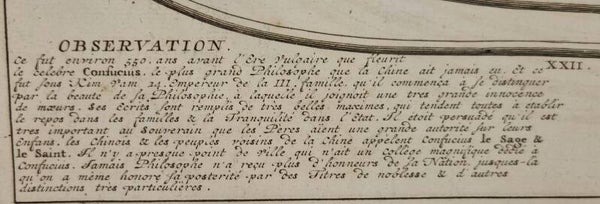 OBSERVATION.
Ce fut environ 550. ans avant l'Ere Vulgaire que fleurit
le celebre Confucius, le plus grand Philosophe que la Chine ait jamais eu. Et ce
XXII.
fut sous Kim Vam 24. Empereur de la III. famille, qu'il commença à se distinguer
par la beauté de sa Philosophie, à laquelle il joignoit une tres grande innocence
de mœurs. Ses Ecrits sont remplis de très belles maximes, qui tendent toutes à etablir
le repos dans les familles & la Tranquilité dans l'Etat. Il étoit persuadé qu'il est
tres important au Souverain que les Pères aient une grande autorite sur leurs
Enfans. les Chinois & les peuples voisins de la Chine appelent Confucius le Sage &
le Saint. Il n'y a presque point de ville qui n'ait un college magnifique dédié à
Confucius. Jamais Philosophe n'a reçu plus d'honneurs de sa Nation. jusques-là
qu'on a même honoré sa posterité par des Titres de noblesse & d'autres
distinctions très particulières.